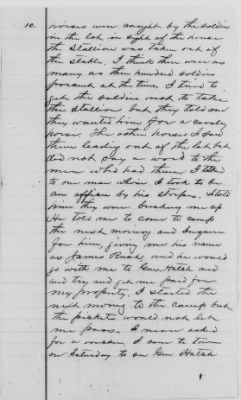 10.
horses were caught by the soldiers
in the lot in sight of the house
the Stallion was taken out of
the Stable. I think there were as
many as three hundred soldiers
present at the time I tried to
get the soldiers not to take
the Stallion but they told me
they wanted him for a cavalry
horse. The other horses I saw
them leading out of the lot but
did not say a word to the
men who had them. I talked
to one man whom I took to be
an officer by his stripes, told
him they were breaking me up
He told me to come to camp
the next morning and inquire
for him, giving me his name
as James Rush, and he would
go with me to Gen. Hatch and
and try and get me paid for
my property. I started the
next morning to the camp but
the pickets would not let
me pass. I never asked
for a voucher. I come to town
on Saturday to see Gen Hatch